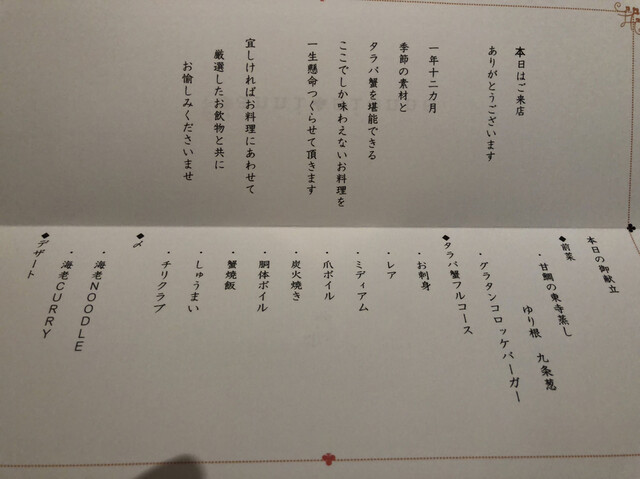 本日はご来店
ありがとうございます
一年十二カ月
季節の素材と
タラバ蟹を堪能できる
ここでしか味わえないお料理を
一生懸命つくらせて頂きます
宜しければお料理にあわせて
厳選したお飲物と共に
お愉しみくださいませ
本日の御献立
◆前菜
・甘鯛の東寺蒸し
ゆり根 九条葱
・グラタンコロッケバーガー
◆タラバ蟹フルコース
・お刺身
・レア
・ミディアム
・爪ボイル
・炭火焼き
・胴体ボイル
・蟹焼飯
・しゅうまい
・チリクラブ
◆〆
・海老NOODLE
・海老CURRY
◆デザート